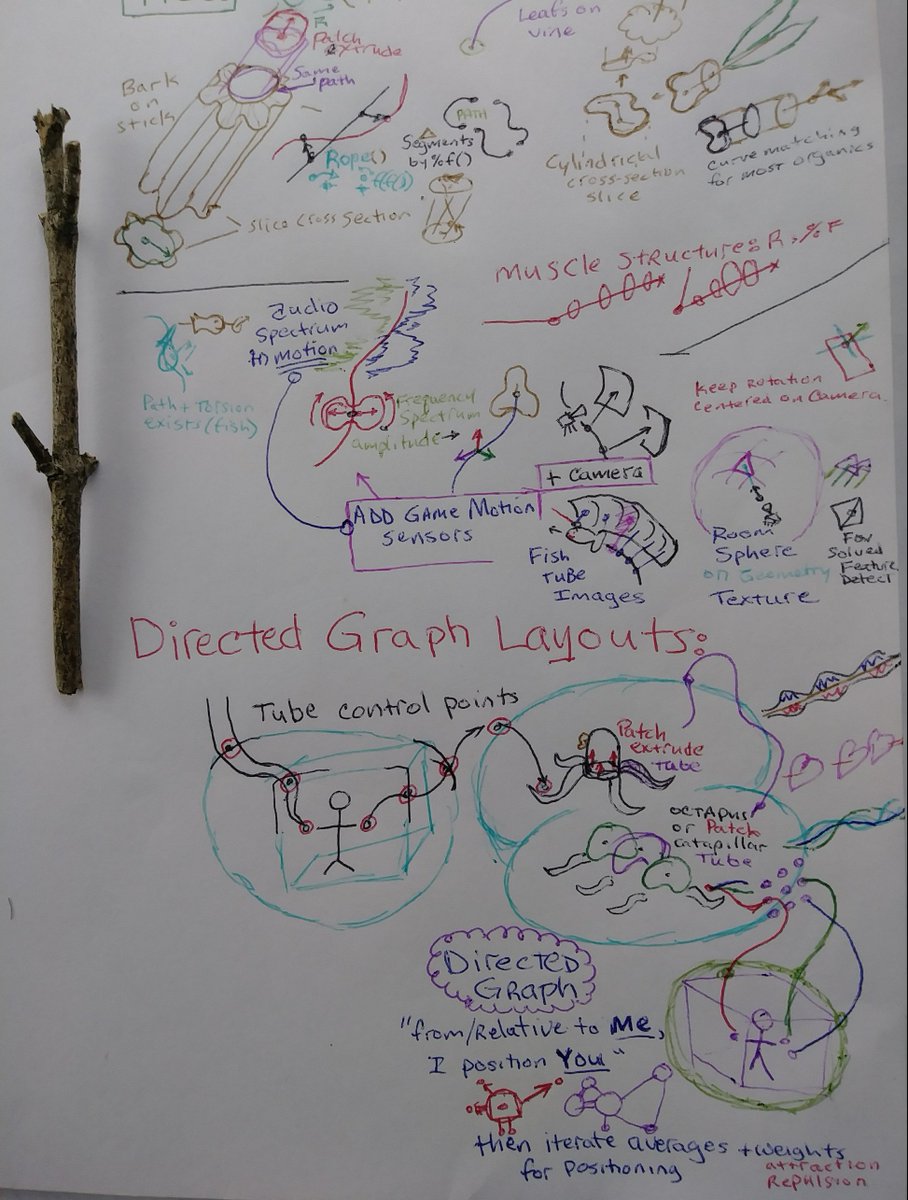 Patch
extrude
Same
path
Bark
on
stick
Leafs on
vine
PATH
Segments
by %f()
Rope()
slice cross section
Cylindrical
cross-section
slice
curve matching
for most organics
Muscle Structure: R, % F
audio
spectrum
in motion
Path + Torsion
exists (fish)
Frequency
Spectrum
amplitude →
+ Camera
Keep Rotation
Centered on Camera.
ADD GAME MOTION
sensors
Fish
Tube
Images
Room
Sphere
on Geometry
Texture
For
Solved
Feature
Detect
Directed Graph Layouts:
Tube control points
Patch
extrude
tube
OCTAPUS
or Patch
catapillar
Tube
Directed
Graph
"from/Relative to Me,
I position You"
then iterate averages + weights
for positioning
attraction
Repulsion